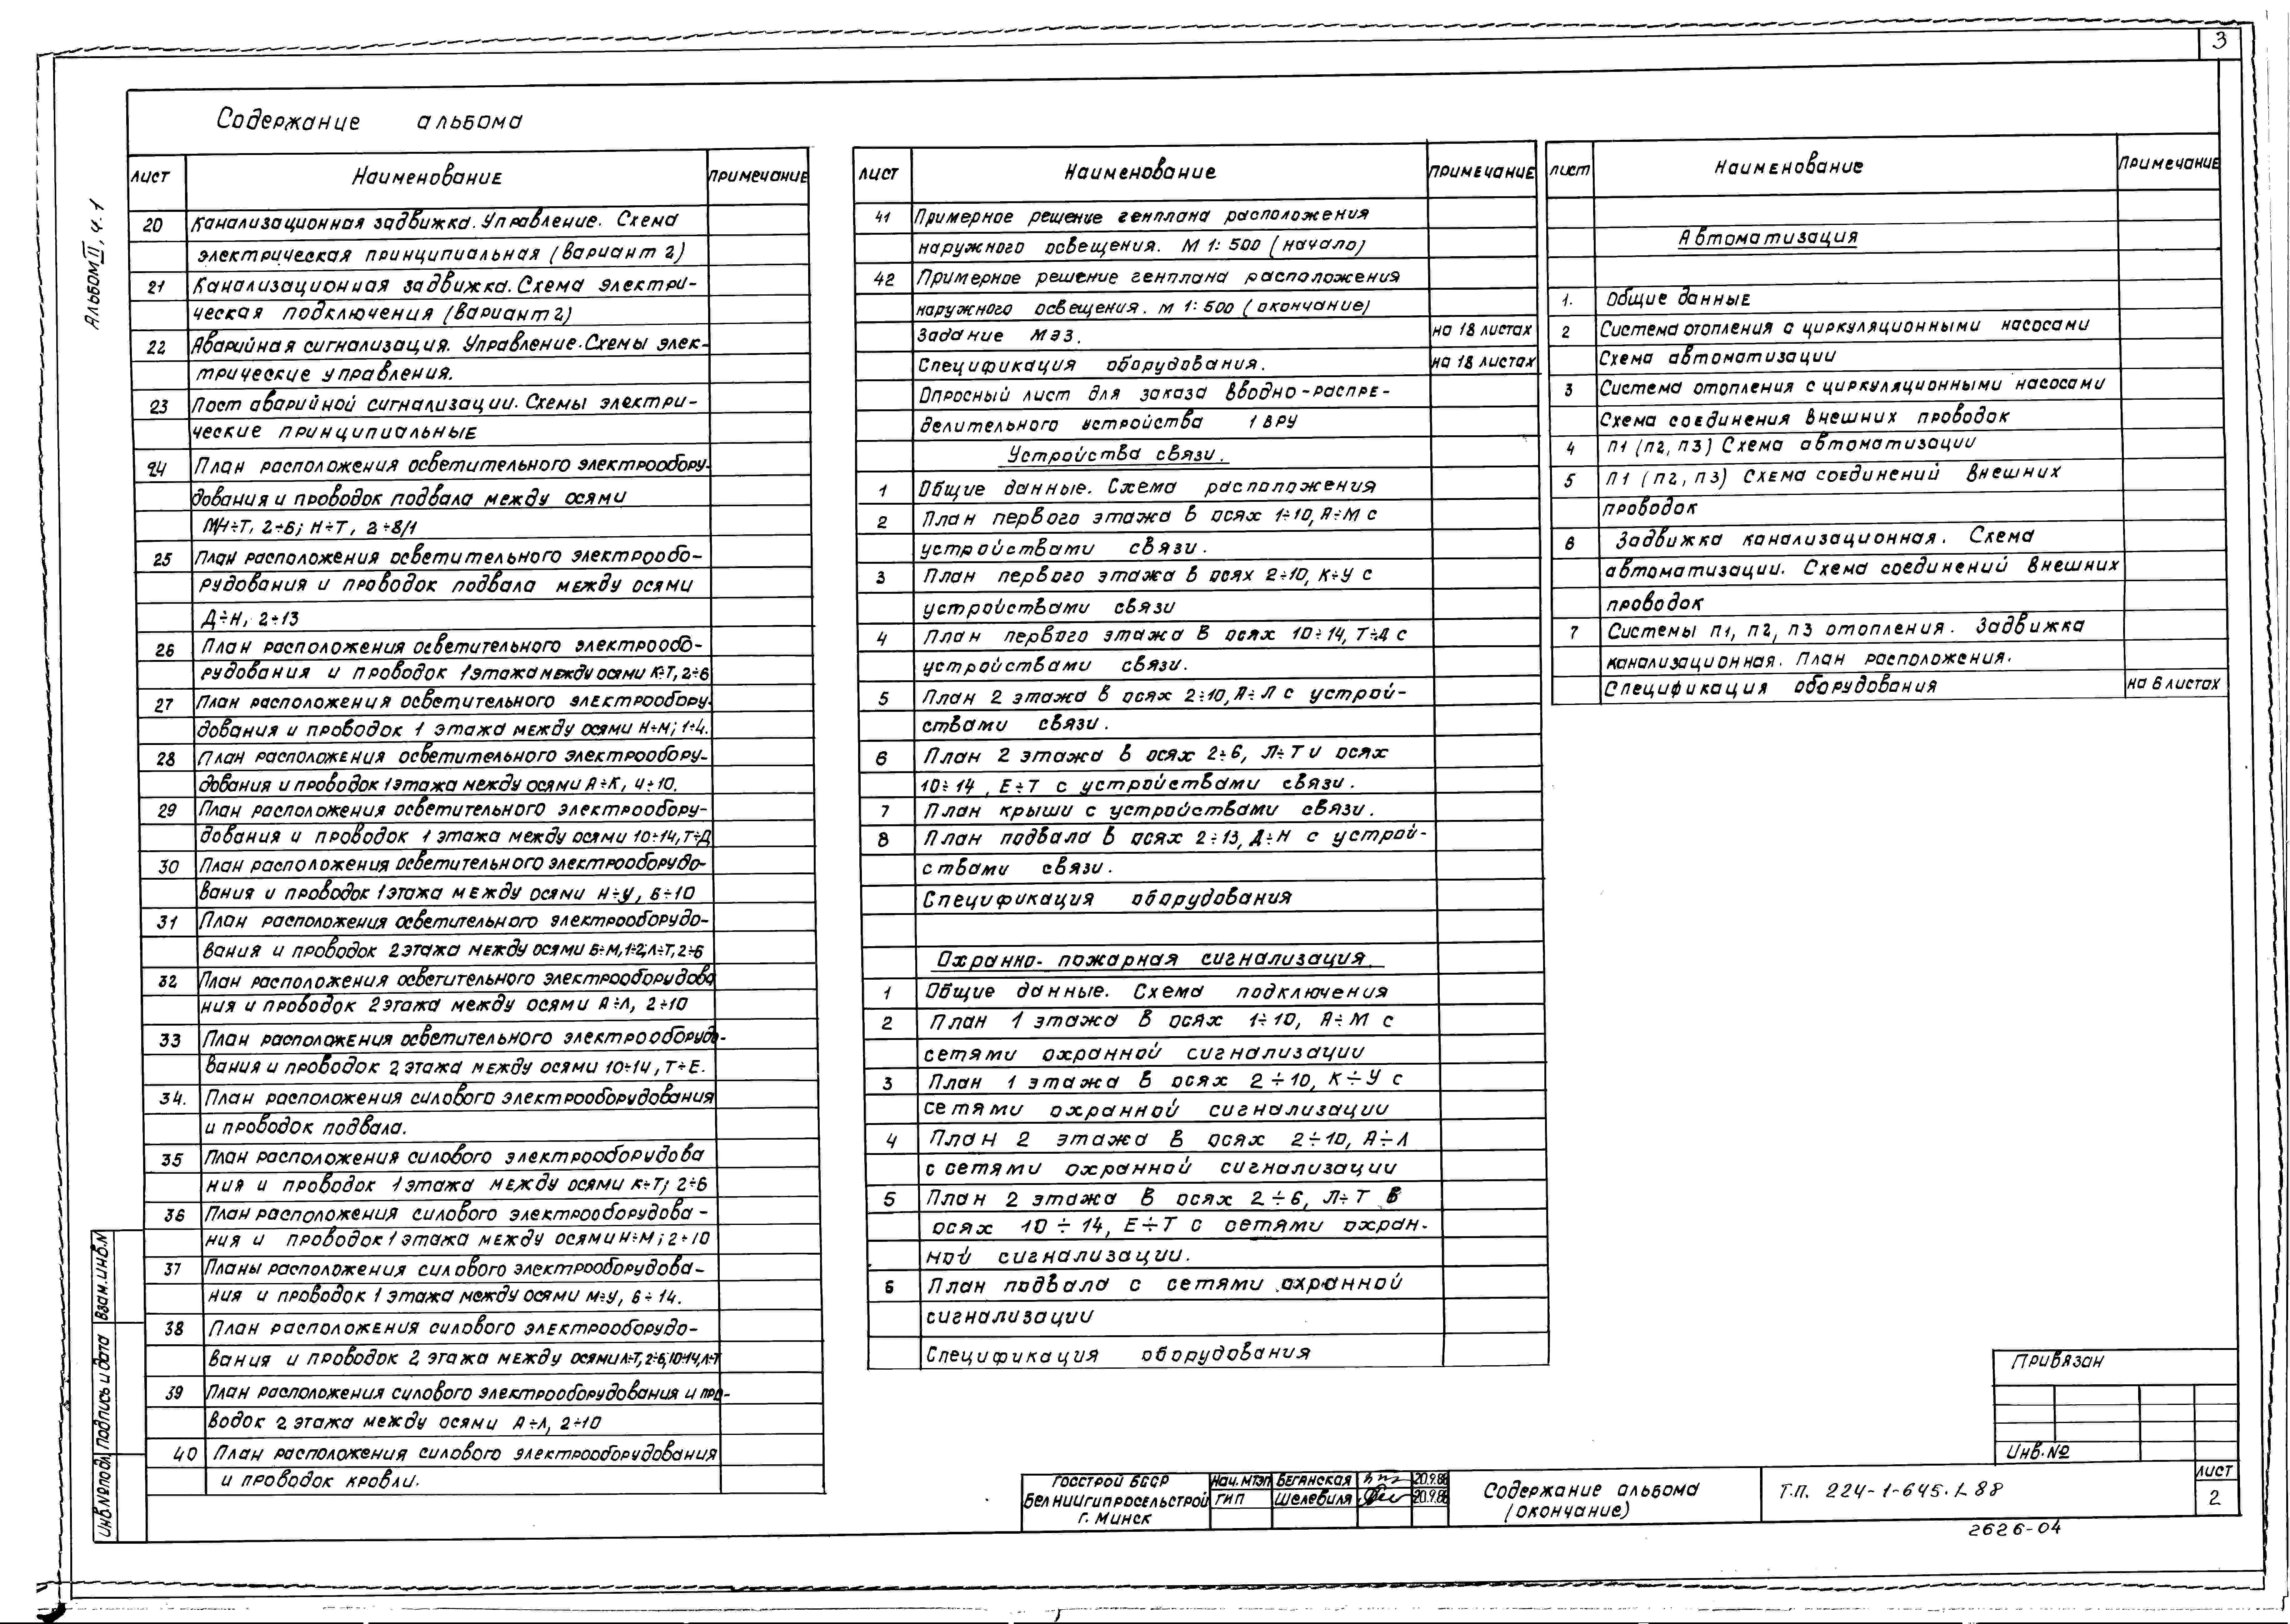 3
Содержание альбома
Альбом III, ч.1
лист Наименование примечание
20 Канализационная задвижка. Управление. Схема
электрическая принципиальная (вариант 2)
21 Канализационная задвижка. Схема электри-
ческая подключения (вариант 2)
22 Аварийная сигнализация. Управление. Схемы элек-
трические управления.
23 Пост аварийной сигнализации. Схемы электри-
ческие принципиальные
24 План расположения осветительного электрообору-
дования и проводок подвала между осями
МН÷Т, 2÷6; Н÷Т, 2÷8/1
25 План расположения осветительного электрообо-
рудования и проводок подвала между осями
Д÷Н, 2÷13
26 План расположения осветительного электрообо-
рудования и проводок 1 этажа между осями К÷Т, 2÷6
27 План расположения осветительного электрообору-
дования и проводок 1 этажа между осями Н÷М; 1÷4.
28 План расположения осветительного электрообору-
дования и проводок 1 этажа между осями А÷К, 4÷10.
29 План расположения осветительного электрообору-
дования и проводок 1 этажа между осями 10÷14, Т÷Д
30 План расположения осветительного электрооборудо-
вания и проводок 1 этажа между осями Н÷У, 6÷10
31 План расположения осветительного электрооборудо-
вания и проводок 2 этажа между осями Б÷М, 1÷2, Л÷Т, 2÷6
32 План расположения осветительного электрооборудова
ния и проводок 2 этажа между осями А÷Л, 2÷10
33 План расположения осветительного электрооборудо-
вания и проводок 2 этажа между осями 10÷14, Т÷Е.
34. План расположения силового электрооборудования
и проводок подвала.
35 План расположения силового электрооборудова
ния и проводок 1 этажа между осями К÷Т; 2÷6
36 План расположения силового электрооборудова-
ния и проводок 1 этажа между осями Н÷М; 2÷10
37 Планы расположения силового электрооборудова-
ния и проводок 1 этажа между осями М÷У, 6÷14.
38 План расположения силового электрооборудо-
вания и проводок 2 этажа между осями Л÷Т, 2÷6, 10÷14, Л÷Т
39 План расположения силового электрооборудования и про-
водок 2 этажа между осями А÷Л, 2÷10
40 План расположения силового электрооборудования
и проводок кровли.
лист Наименование примечание
41 Примерное решение генплана расположения
наружного освещения. М 1:500 (начало)
42 Примерное решение генплана расположения
наружного освещения. М 1:500 (окончание)
Задание МЭЗ. на 18 листах
Спецификация оборудования. на 18 листах
Опросный лист для заказа вводно-распре-
делительного устройства 1 ВРУ
Устройства связи.
1 Общие данные. Схема расположения
2 План первого этажа в осях 1÷10, А÷М с
устройствами связи.
3 План первого этажа в осях 2÷10, К÷У с
устройствами связи
4 План первого этажа в осях 10÷14, Т÷Д с
устройствами связи.
5 План 2 этажа в осях 2÷10, А÷Л с устрой-
ствами связи.
6 План 2 этажа в осях 2÷6, Л÷Т и осях
10÷14, Е÷Т с устройствами связи.
7 План крыши с устройствами связи.
8 План подвала в осях 2÷13, Д÷Н с устрой-
ствами связи.
Спецификация оборудования
Охранно-пожарная сигнализация.
1 Общие данные. Схема подключения
2 План 1 этажа в осях 1÷10, А÷М с
сетями охранной сигнализации
3 План 1 этажа в осях 2÷10, К÷У с
сетями охранной сигнализации
4 План 2 этажа в осях 2÷10, А÷Л
с сетями охранной сигнализации
5 План 2 этажа в осях 2÷6, Л÷Т в
осях 10÷14, Е÷Т с сетями охран-
ной сигнализации.
6 План подвала с сетями охранной
сигнализации
Спецификация оборудования
лист Наименование примечание
Автоматизация
1. Общие данные
2 Система отопления с циркуляционными насосами
Схема автоматизации
3 Система отопления с циркуляционными насосами
Схема соединения внешних проводок
4 П1 (П2, П3) Схема автоматизации
5 П1 (П2, П3) Схема соединений внешних
проводок
6 Задвижка канализационная. Схема
автоматизации. Схема соединений внешних
проводок
7 Системы П1, П2, П3 отопления. Задвижка
канализационная. План расположения.
Спецификация оборудования на 6 листах
Привязан
Инв. №
Взам. инв. N
Подпись и дата
Инв. № подл
Госстрой БССР
БелНИИгипросельстрой
г. Минск
Нач. МТЭП Беганская 20.9.88
ГИП Шелевиля 20.9.88
Содержание альбома
(окончание)
Т.П. 224-1-645.1.88
лист
2
2626-04